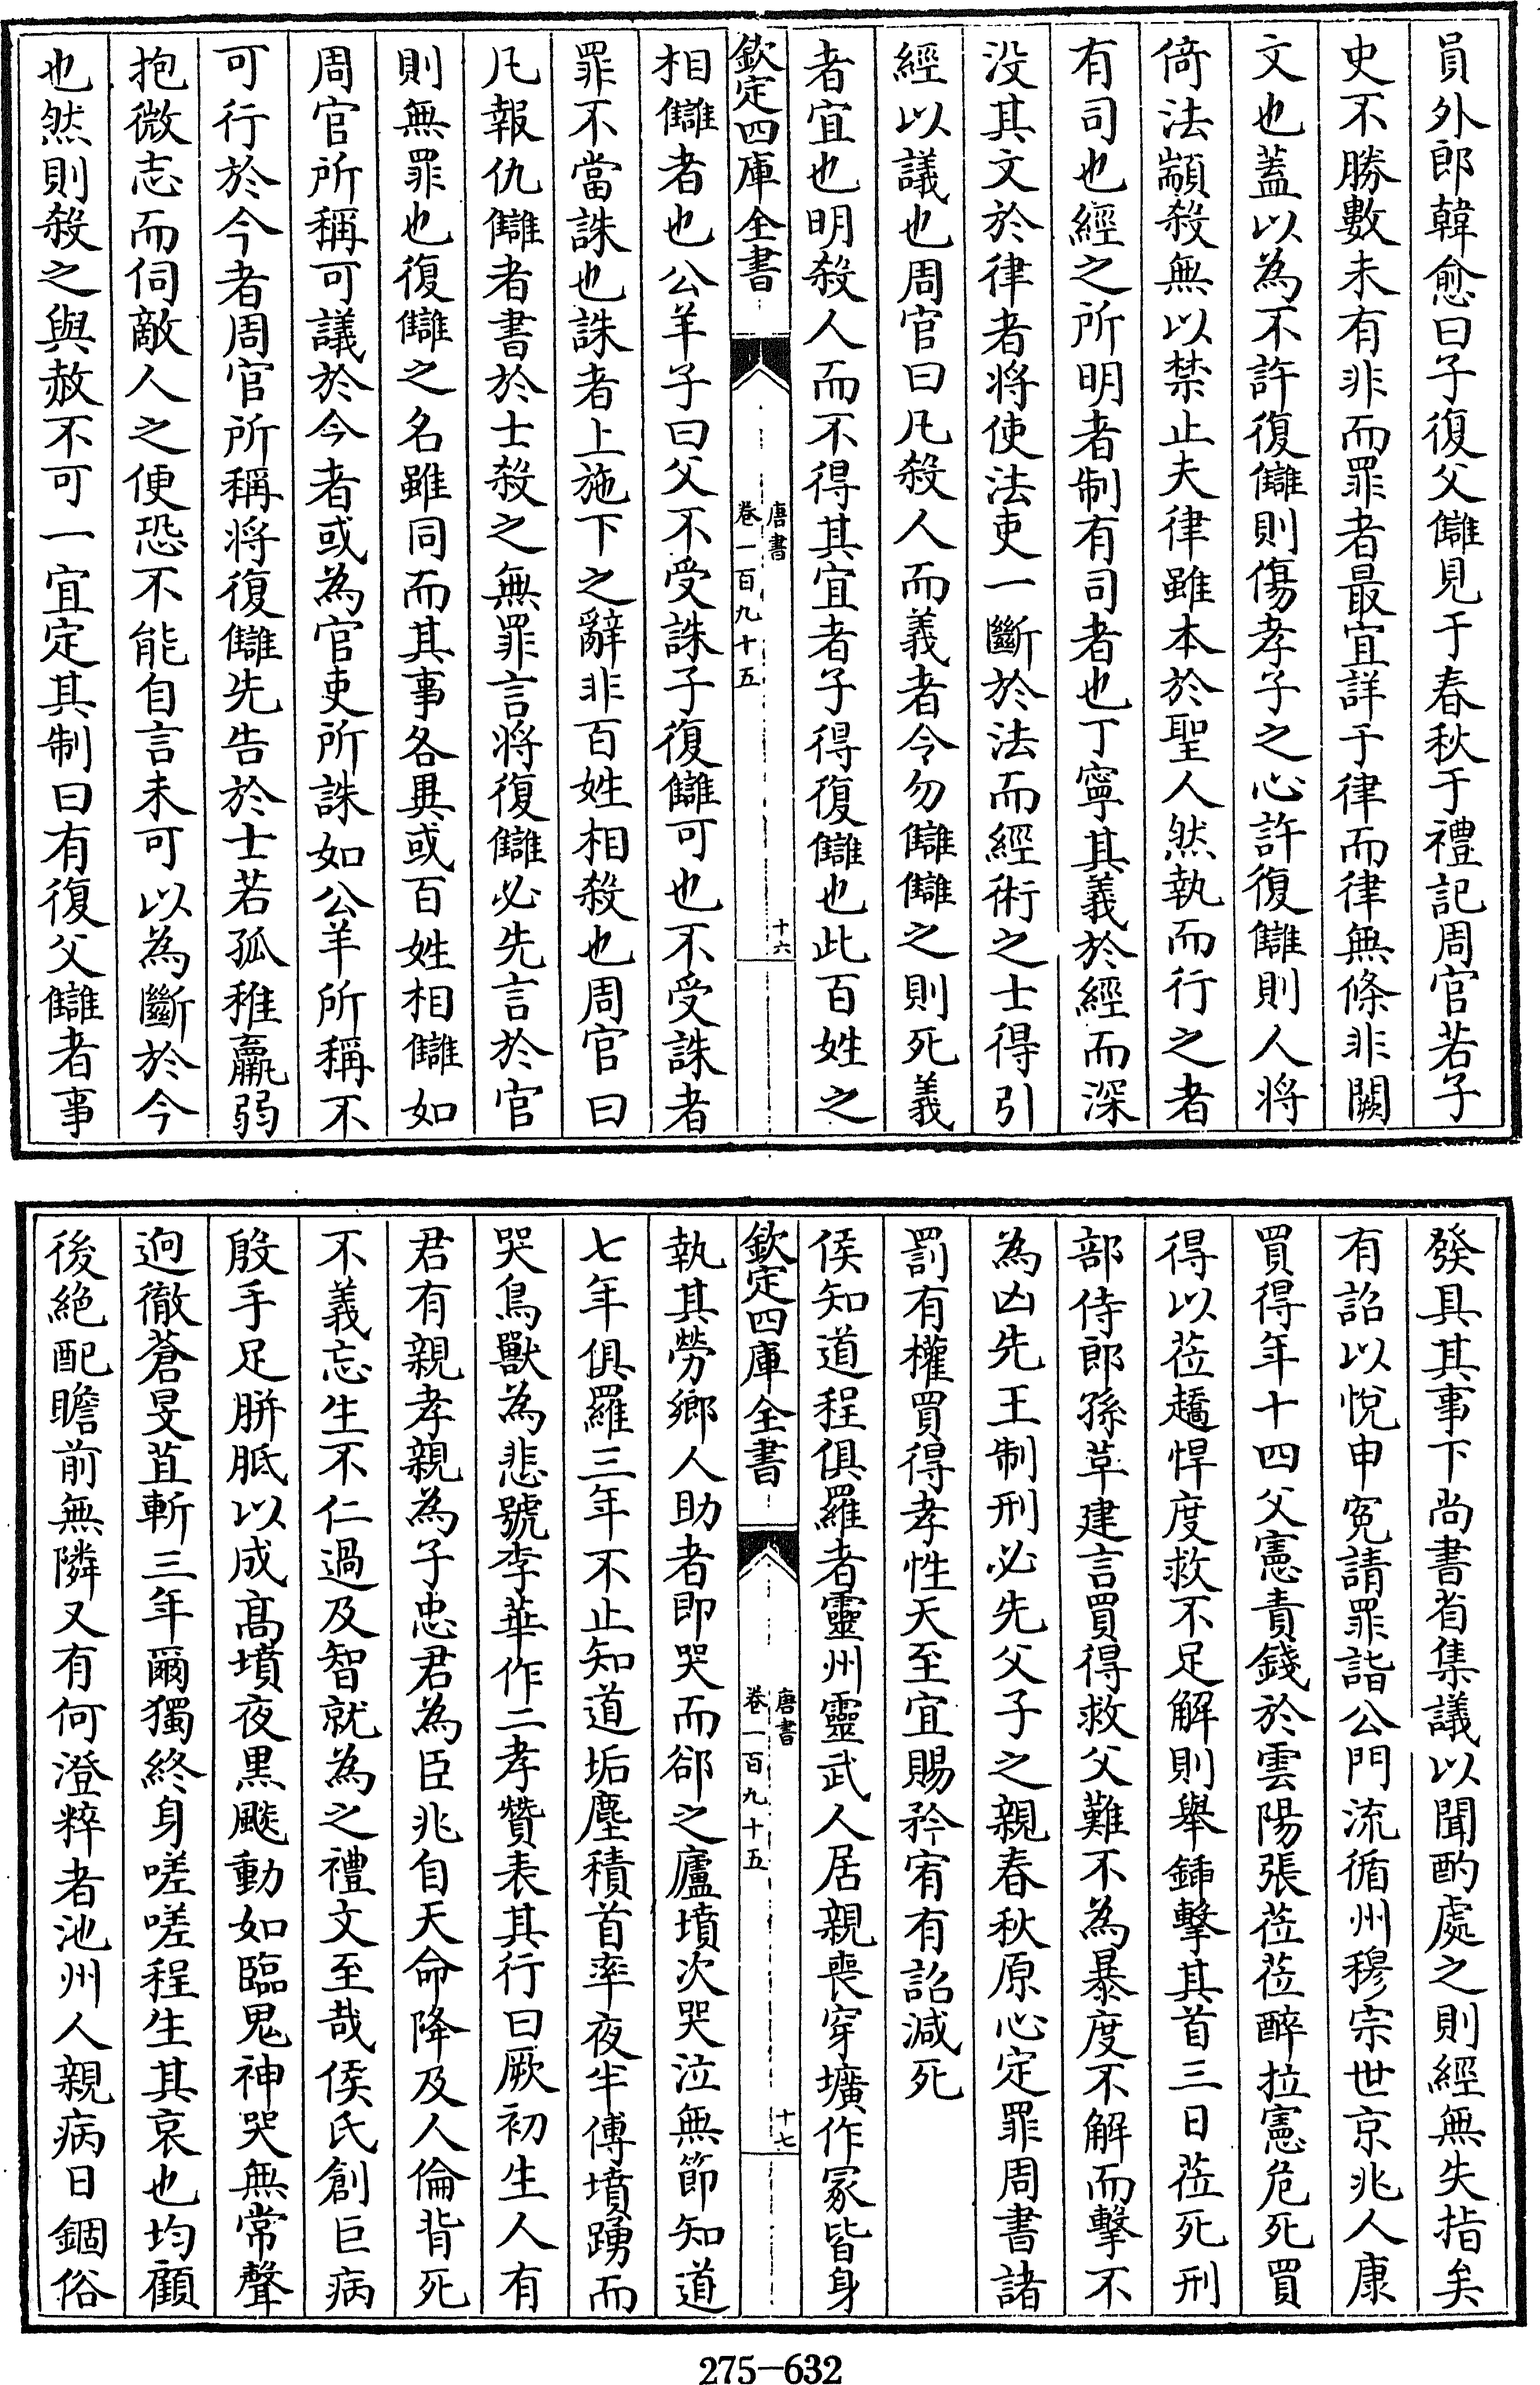 員外郎韓愈曰子復父讎見于春秋于禮記周官若子
史不勝數未有非而罪者最宜詳于律而律無條非闕
文也蓋以為不許復讎則傷孝子之心許復讎則人將
倚法顓殺無以禁止夫律雖本於聖人然執而行之者
有司也經之所明者制有司者也丁寧其義於經而深
没其文於律者将使法吏一斷於法而經術之士得引
經以議也周官曰凡殺人而義者令勿讎讎之則死義
者宜也明殺人而不得其宜者子得復讎也此百姓之
欽定四庫全書
唐書
卷一百九十五
十六
相讎者也公羊子曰父不受誅子復讎可也不受誅者
罪不當誅也誅者上施下之辭非百姓相殺也周官曰
凡報仇讎者書於士殺之無罪言将復讎必先言於官
則無罪也復讎之名雖同而其事各異或百姓相讎如
周官所稱可議於今者或為官吏所誅如公羊所稱不
可行於今者周官所稱将復讎先告於士若孤稚羸弱
抱微志而伺敵人之便恐不能自言未可以為斷於今
也然則殺之與赦不可一宜定其制曰有復父讎者事
發具其事下尚書省集議以聞酌處之則經無失指矣
有詔以悅申寃請罪詣公門流循州穆宗世京兆人康
買得年十四父憲責錢於雲陽張莅莅醉拉憲危死買
得以莅趫悍度救不足解則舉鍤擊其首三日莅死刑
部侍郎孫革建言買得救父難不為暴度不解而擊不
為凶先王制刑必先父子之親春秋原心定罪周書諸
罰有權買得孝性天至宜賜矜宥有詔減死
侯知道程俱羅者靈州靈武人居親喪穿壙作冢皆身
欽定四庫全書
唐書
卷一百九十五
十七
執其勞鄉人助者即哭而郤之廬墳次哭泣無節知道
七年俱羅三年不止知道垢塵積首率夜半傅墳踴而
哭鳥獸為悲號李華作二孝贊表其行曰厥初生人有
君有親孝親為子忠君為臣兆自天命降及人倫背死
不義忘生不仁過及智就為之禮文至哉侯氏創巨病
殷手足胼胝以成髙墳夜黒飈動如臨鬼神哭無常聲
迥徹蒼旻苴斬三年爾獨終身嗟嗟程生其哀也均顧
後絶配瞻前無隣又有何澄粹者池州人親病日錮俗
275-632